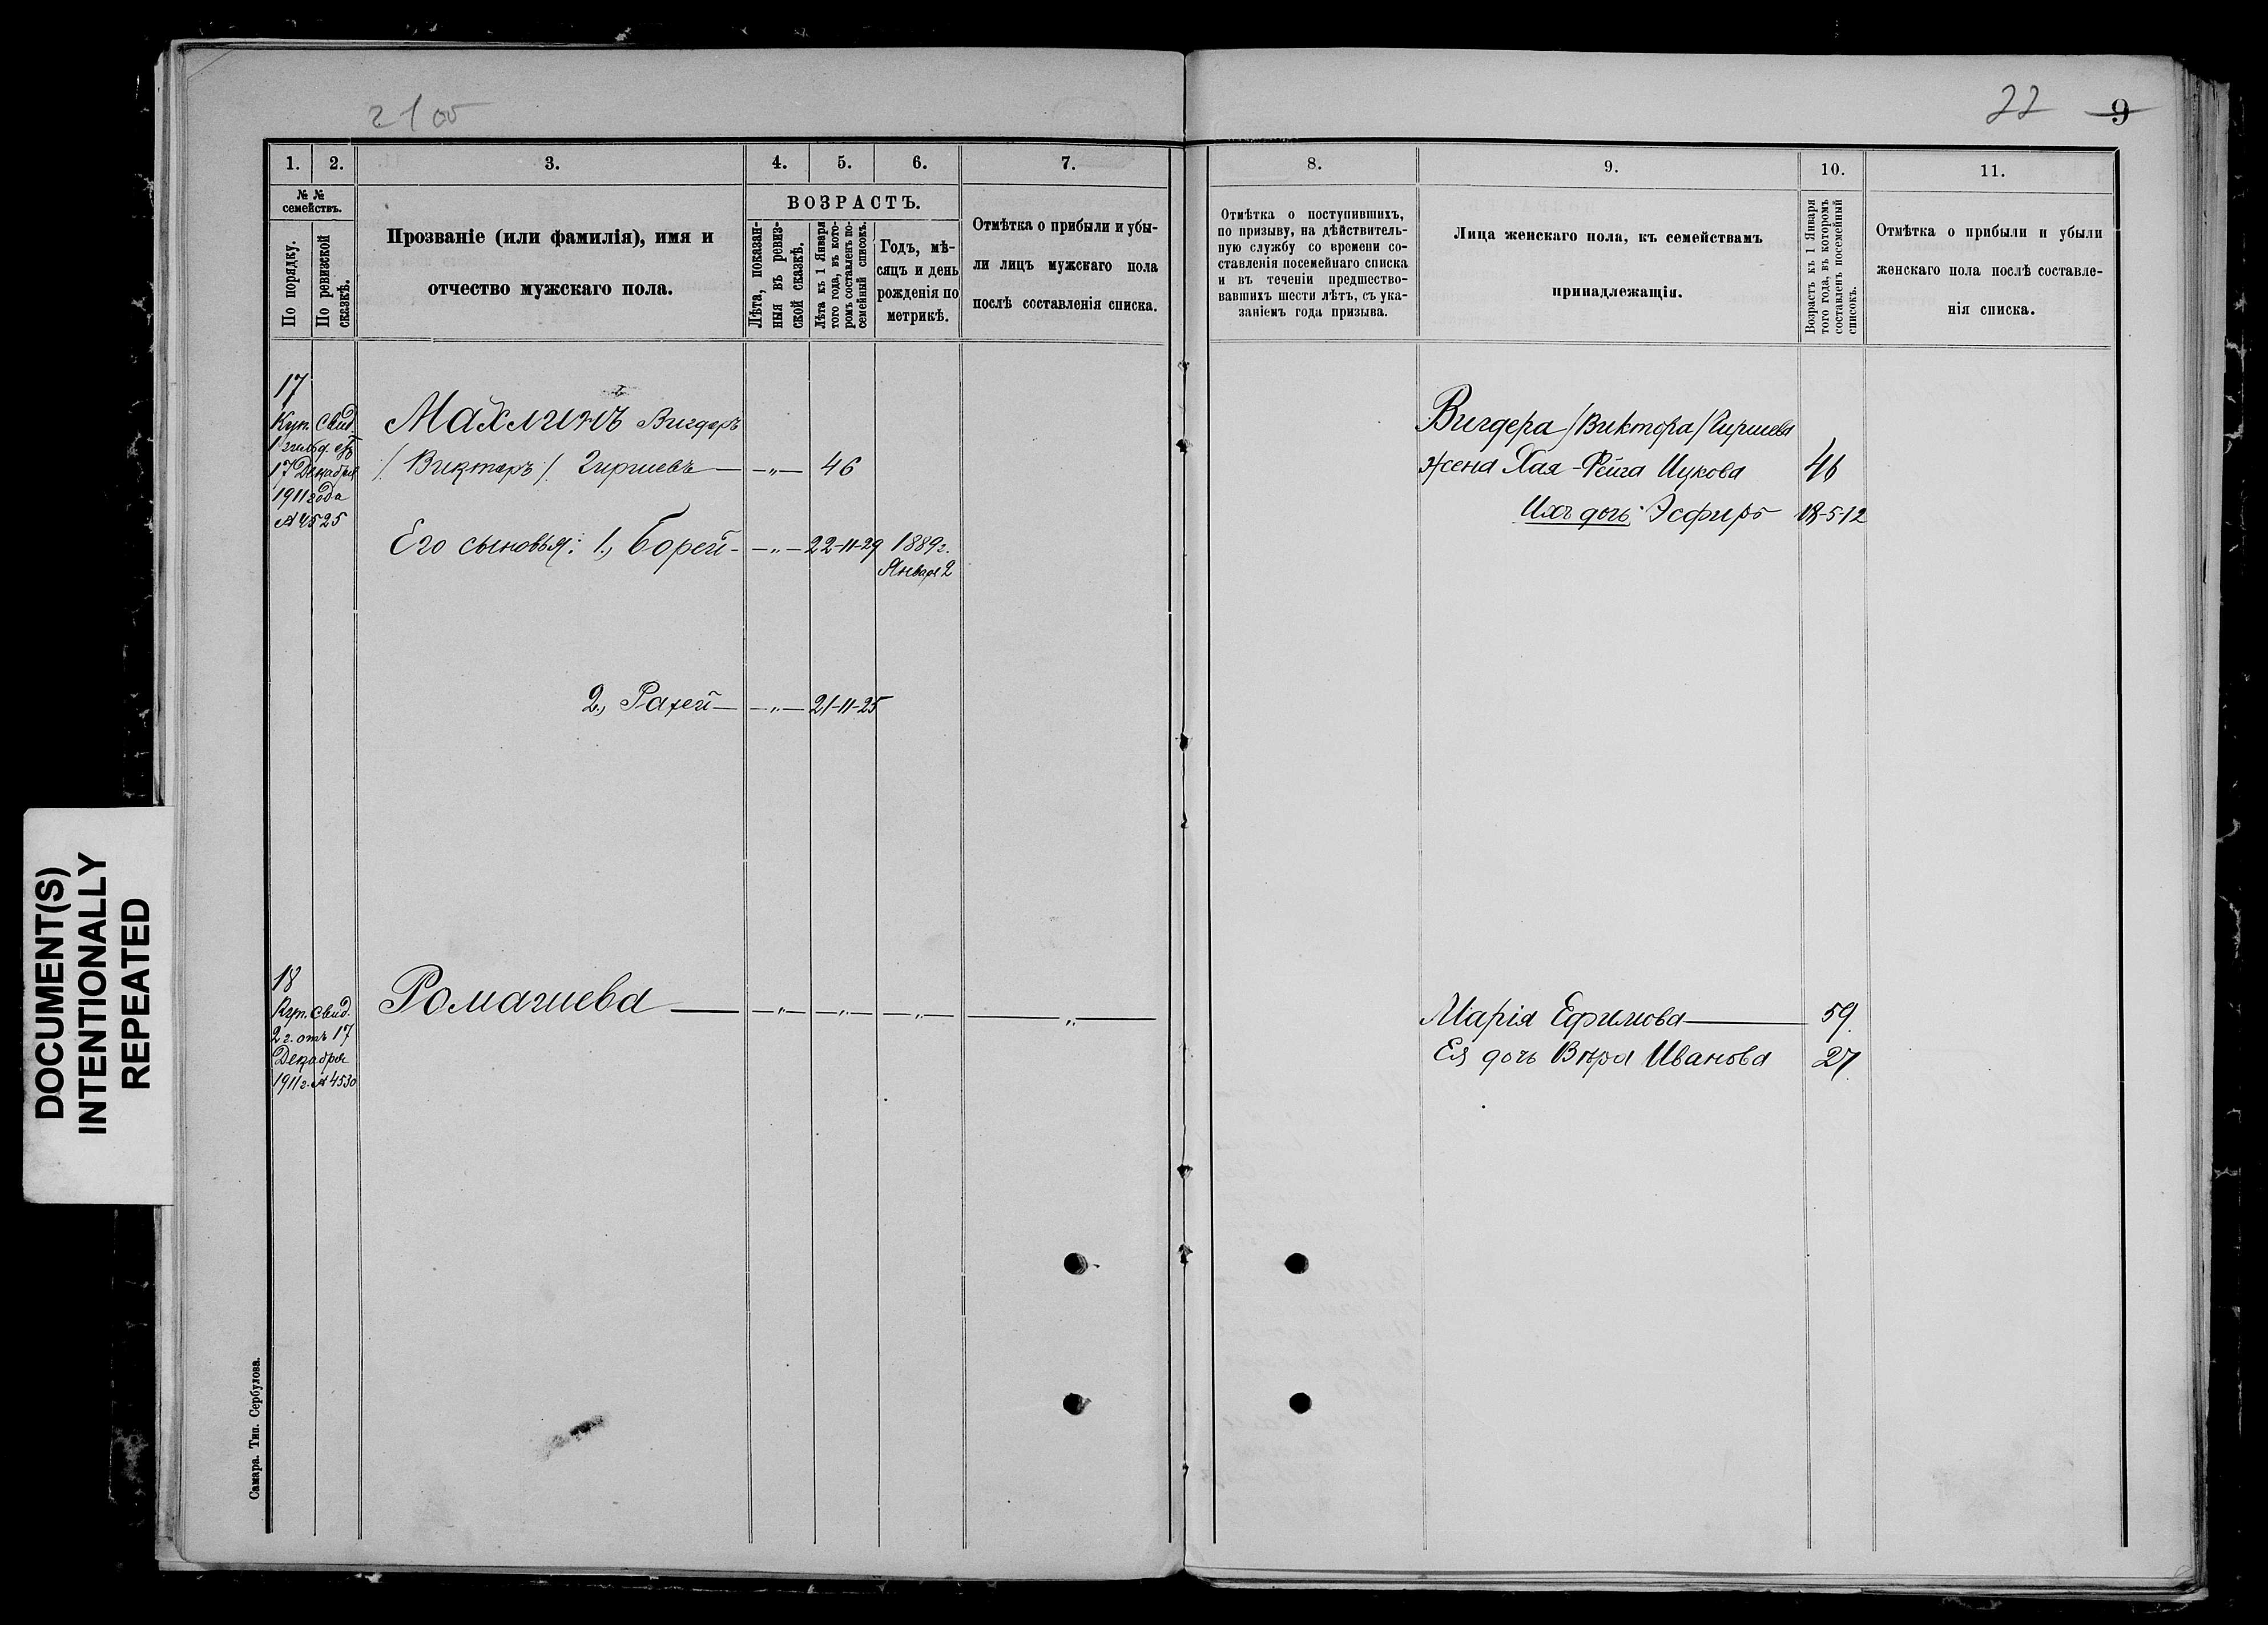 21 об
22 9
1.
2.
3.
4.
5.
6.
7.
8.
9.
10.
11.
№ №
семействъ.
По порядку.
По ревизской
сказкѣ.
Прозваніе (или фамилія), имя и
отчество мужскаго пола.
ВОЗРАСТЪ.
Лѣта, показан-
ныя въ ревиз-
ской сказкѣ.
Лѣта къ 1 Января
того года, въ кото-
ромъ составленъ по-
семейный списокъ.
Годъ, мѣ-
сяцъ и день
рожденія по
метрикѣ.
Отмѣтка о прибыли и убы-
ли лицъ мужскаго пола
послѣ составленія списка.
Отмѣтка о поступившихъ,
по призыву, на дѣйствитель-
ную службу со времени со-
ставленія посемейнаго списка
и въ теченіи предшество-
вавшихъ шести лѣтъ, съ ука-
заніемъ года призыва.
Лица женскаго пола, къ семействамъ
принадлежащія.
Возрастъ къ 1 Января
того года, въ которомъ
составленъ посемейный
списокъ.
Отмѣтка о прибыли и убыли
женскаго пола послѣ составле-
нія списка.
17
Куп. Свид.
1 гильд. от
17 Декабря
1911 года
№ 4525
Махлинъ Вигдеръ
/Викторъ/ Гиршевъ — „ — 46
Его сыновья: 1, Борей — „ — 22-11-29 1889 г.
Января 2
2, Рахей — „ — 21-11-25
Вигдера /Виктора/ Гиршева
жена Хая-Фейга Ицкова 46
Ихъ дочь: Эсфирь 18-5-12
18
Куп. Свид.
2 г. отъ 17
Декабря
1911 г. № 4530
Ромашева — „ — „ — „ — „ —
Марія Ефимова — 59.
Ея дочь Вѣра Иванова 27.
Самара. Тип. Сербулова.
DOCUMENT(S)
INTENTIONALLY
REPEATED